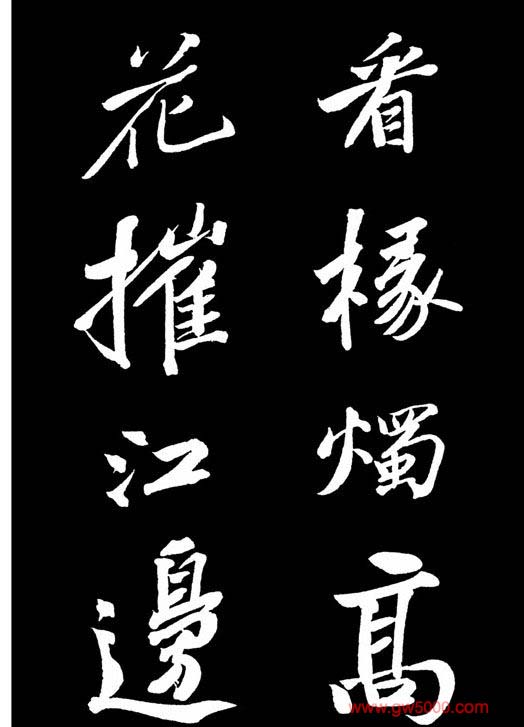 看椽燭高
花摧江邊
www.gw5000.com